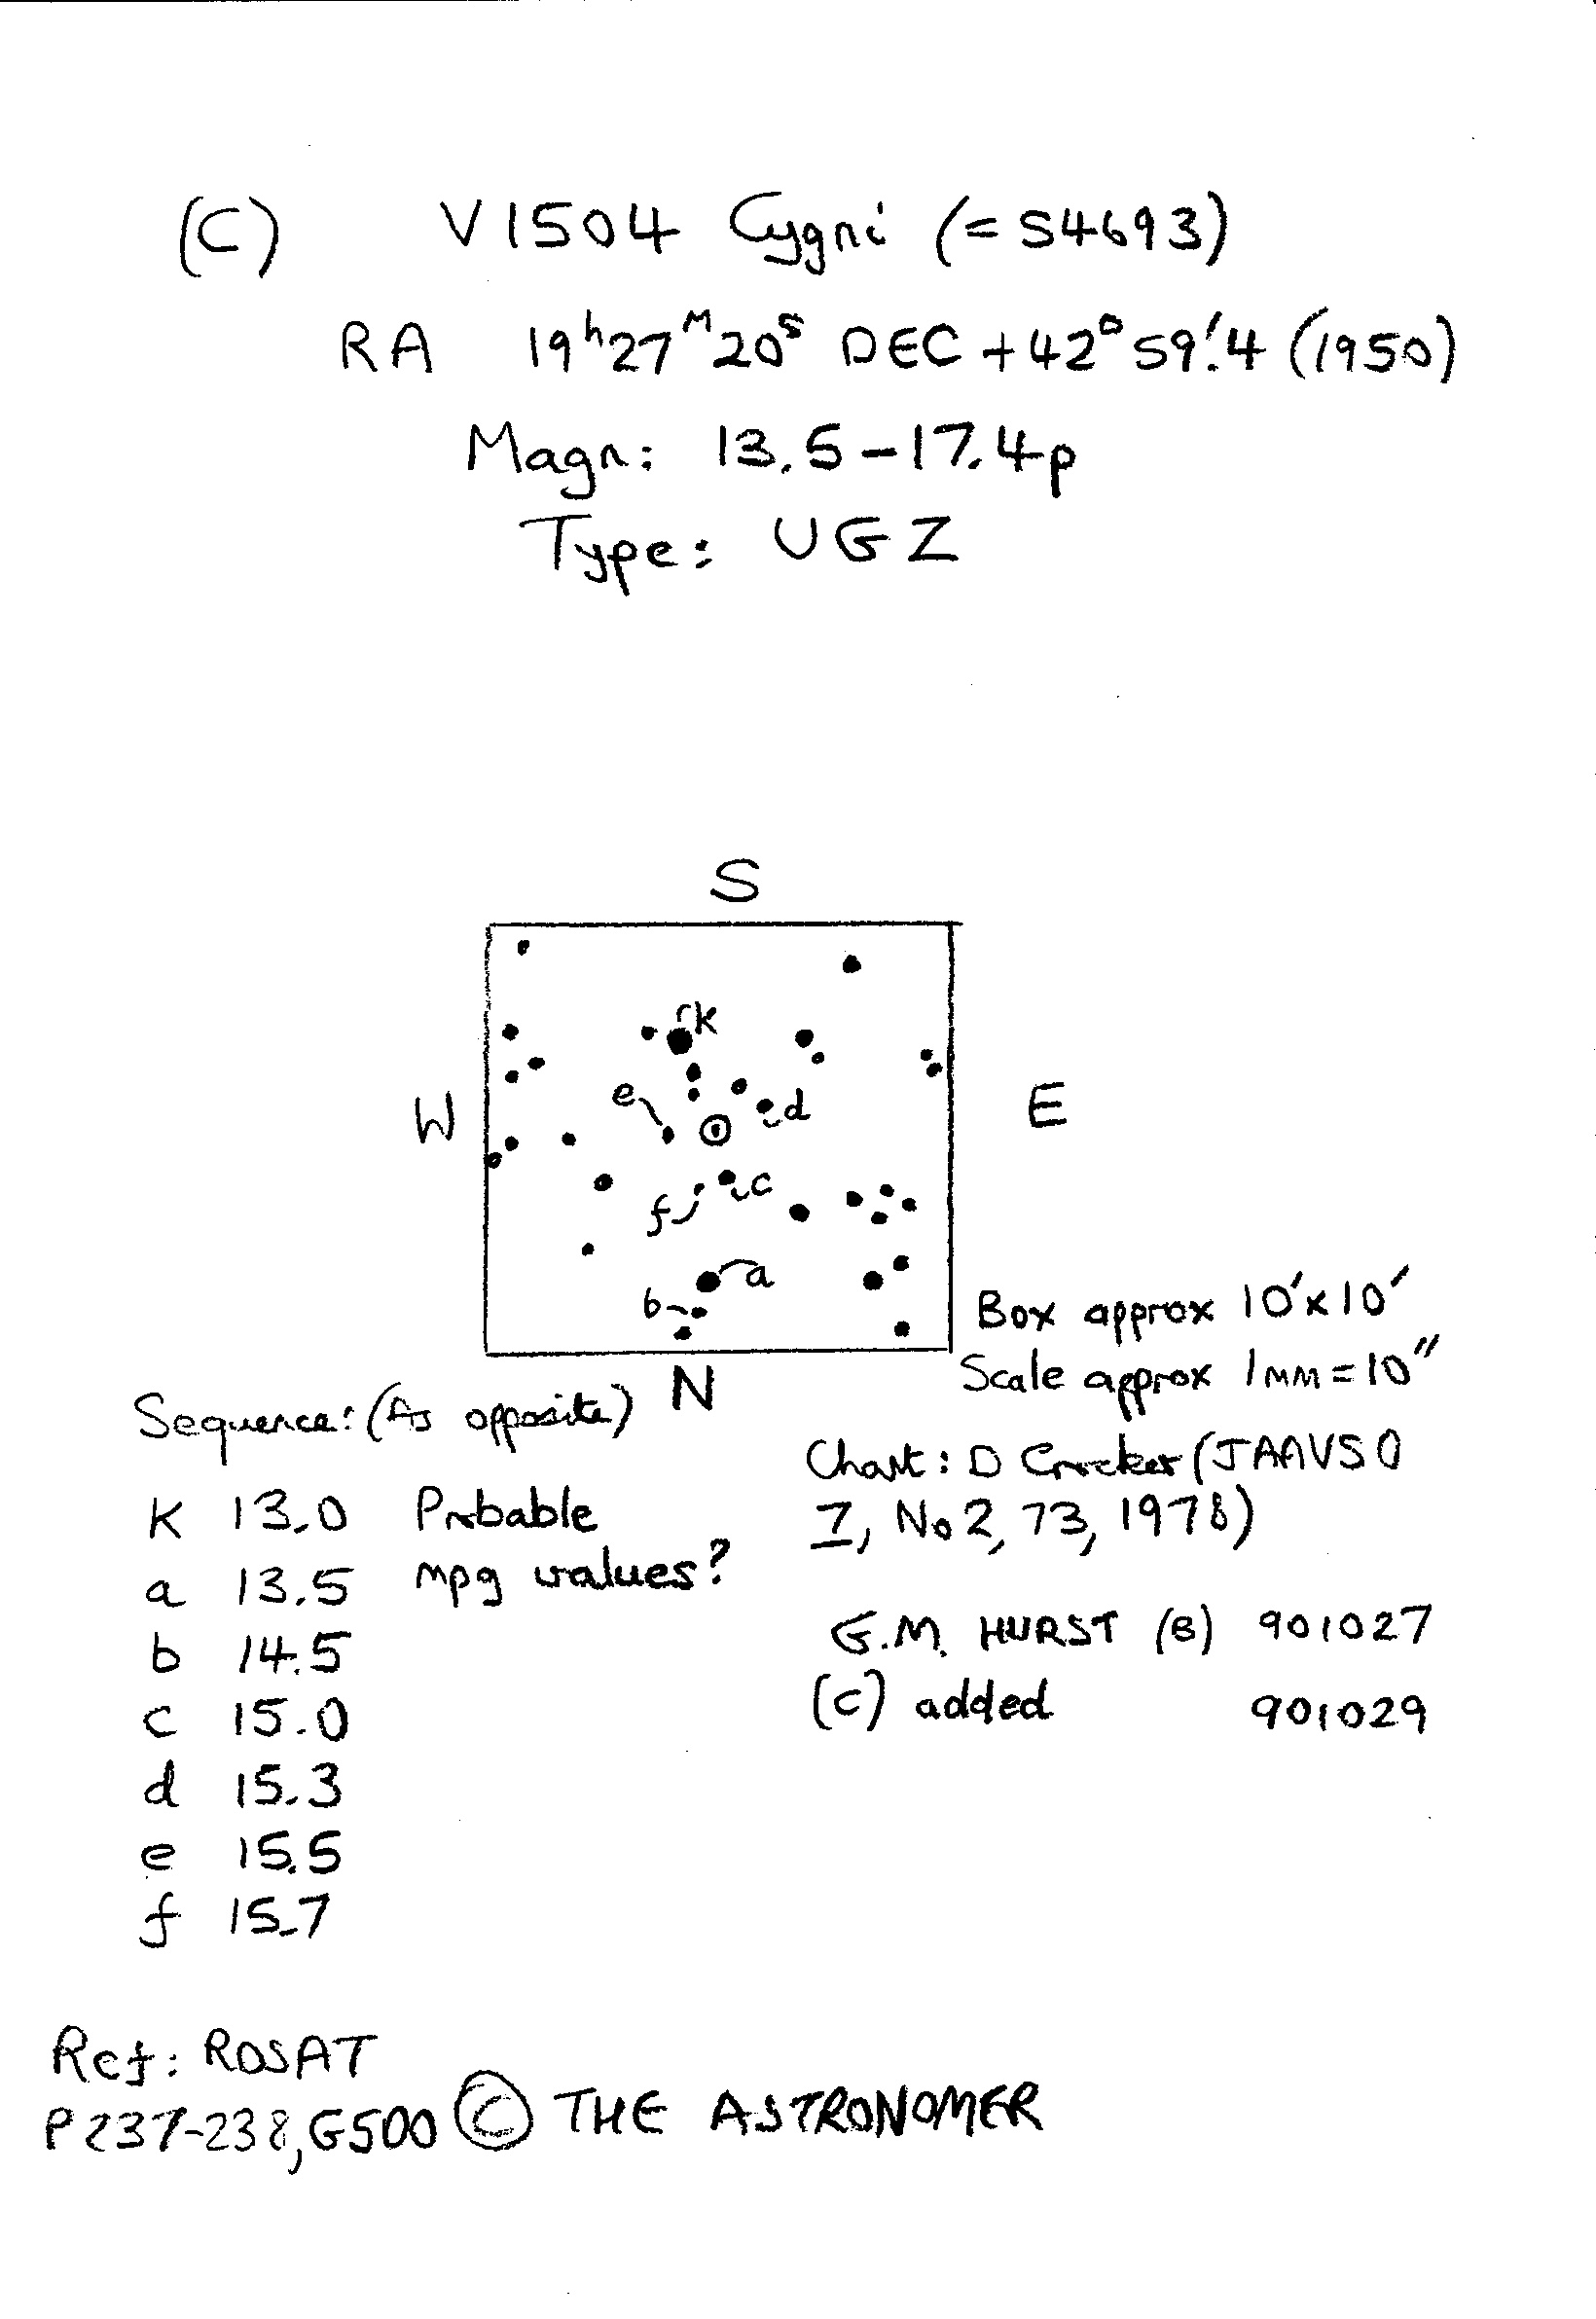 (C) V1504 Cygni (= S4693)
RA 19ʰ27ᴹ20ˢ DEC +42° 59!4 (1950)
Magn: 13.5-17.4p
Type: UGZ
S
k
e
d
W
E
c
f
a
b
Box approx 10'x10'
N
Scale approx 1MM=10"
Sequence: (As opposite)
Chart: D Crocker (JAAVSO
7, No 2, 73, 1978)
K 13.0 Probable
a 13.5 mpg values?
b 14.5
c 15.0
d 15.3
e 15.5
f 15.7
G.M. HURST (B) 901027
(C) added 901029
Ref: ROSAT
P237-238, G500 © THE ASTRONOMER